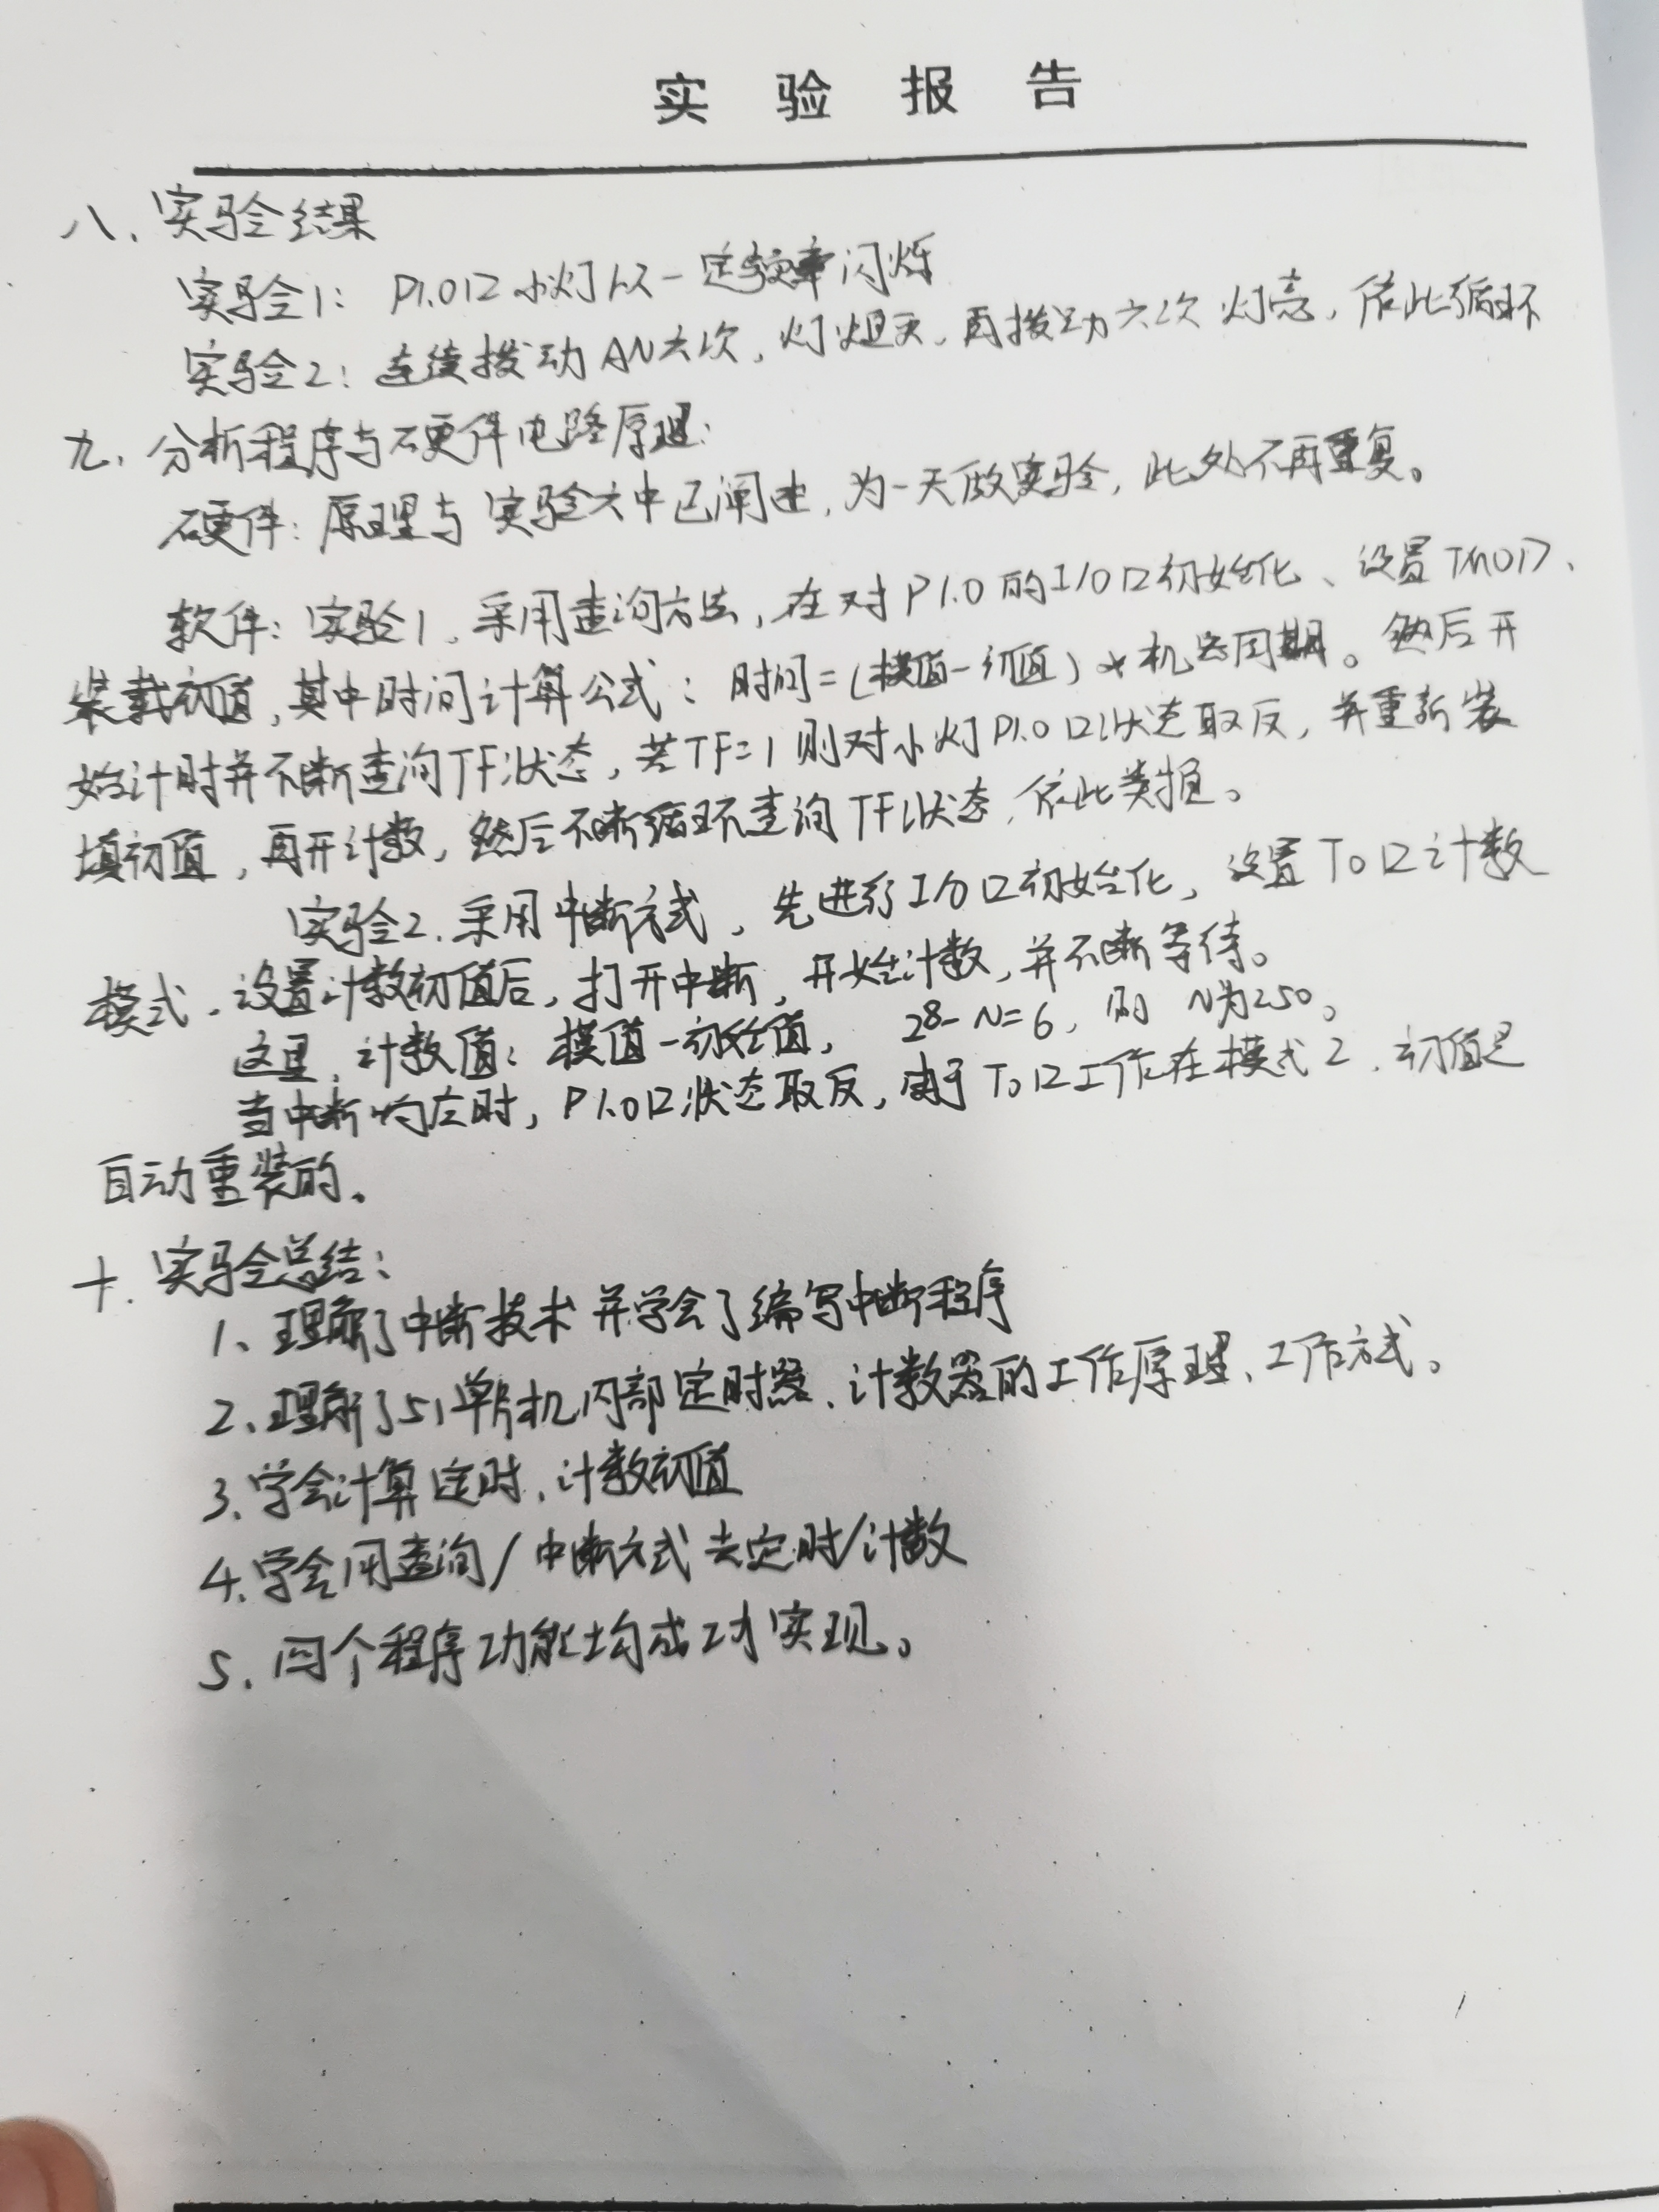 实验报告
八、实验结果
实验1: P1.0口小灯以一定频率闪烁
实验2: 连续拨动AN六次,灯熄灭,再拨动六次灯亮,依此循环
九、分析程序与硬件电路原理:
硬件: 原理与实验六中已阐述,为一天做实验,此处不再重复。
软件: 实验1、采用查询方法,在对P1.0的I/O口初始化、设置TMOD、
装载初值,其中时间计算公式: 时间=(模值-初值)*机器周期。然后开
始计时并不断查询TF状态,若TF=1则对小灯P1.0口状态取反,并重新装
填初值,再开计数,然后不断循环查询TF状态,依此类推。
实验2、采用中断方式,先进行I/O口初始化,设置T0口计数
模式、设置计数初值后,打开中断,开始计数,并不断等待。
这里,计数值: 模值-初始值, 2⁸-N=6,则N为250。
当中断响应时,P1.0口状态取反,由于T0口工作在模式2、初值是
自动重装的。
十、实验总结:
1、理解了中断技术并学会了编写中断程序
2、理解了51单片机内部定时器、计数器的工作原理、工作方式。
3、学会计算定时、计数初值
4、学会用查询/中断方式去定时/计数
5、四个程序功能均成功实现。